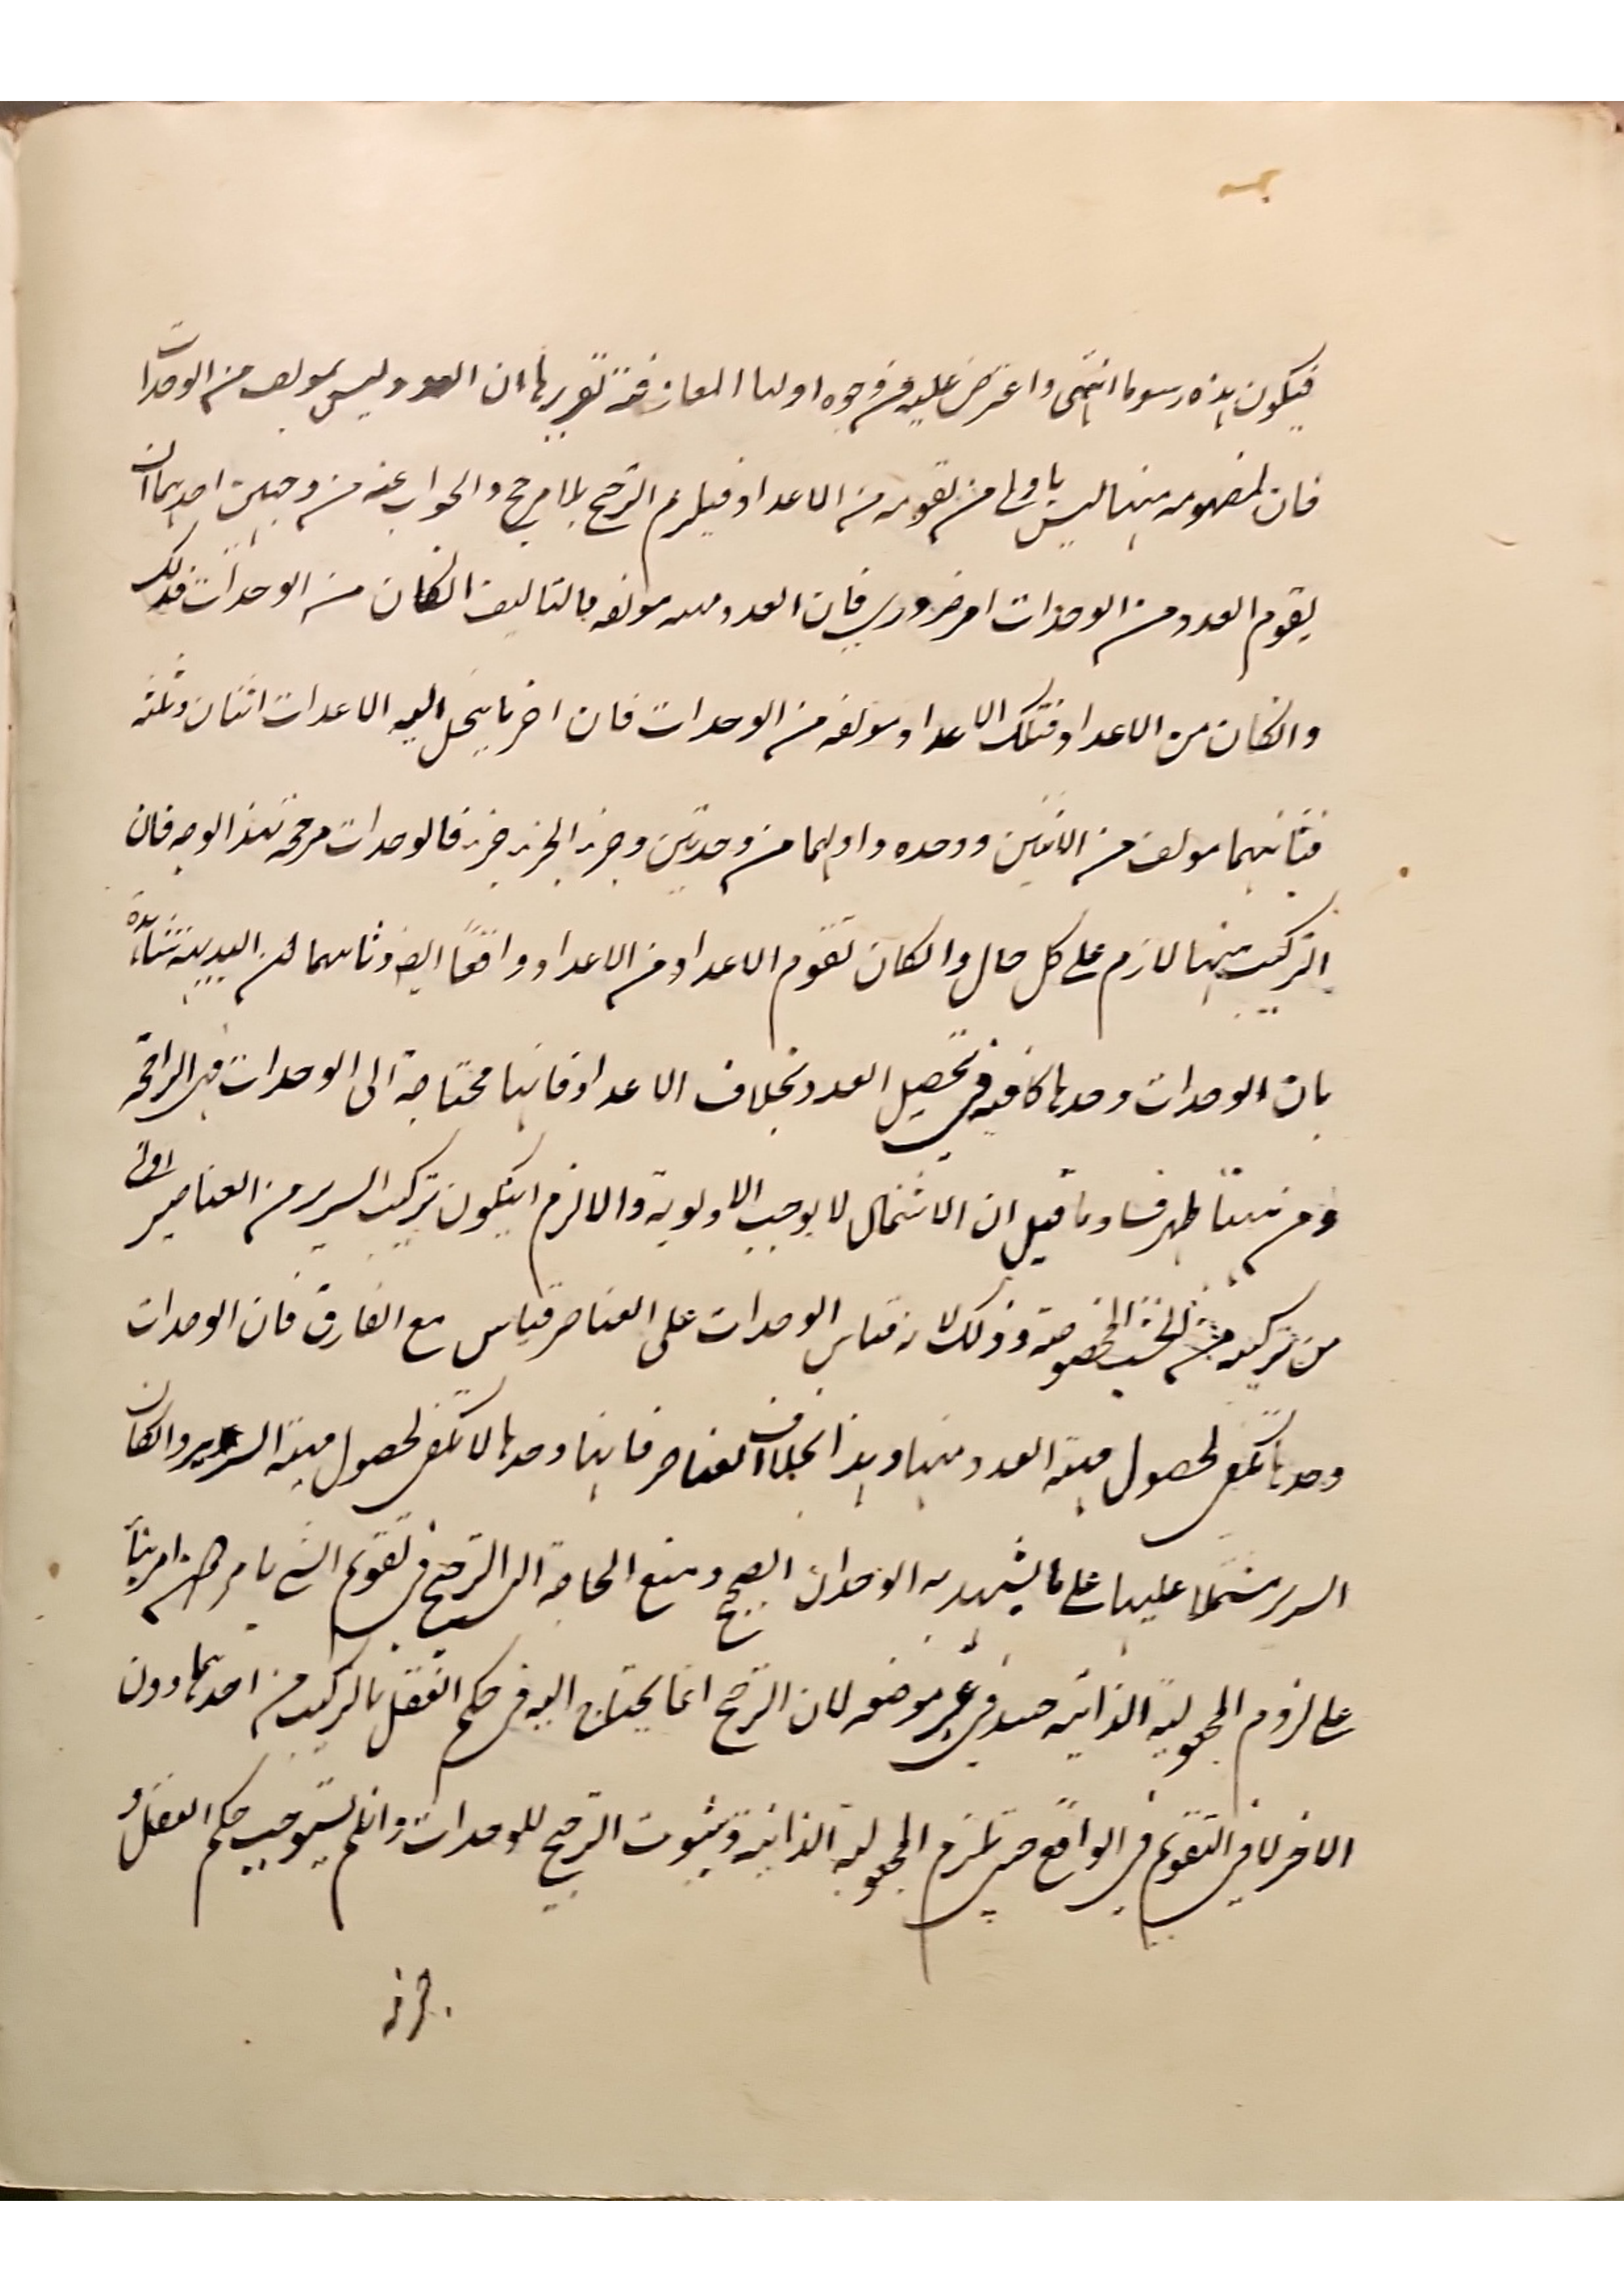 فيكون هذه رسوما انتهى واعترض عليه من وجوه اولها المعارضة تقريرها ان العدد ليس بمولف من الوحدات
فان تقومه منها ليس باولى من تقومه من الاعداد فيلزم الترجح بلا مرجح والجواب عنه من وجهين احدهما ان
تقوم العدد من الوحدات امر ضروري فان العدد مولفه بالتاليف انكان من الوحدات فذلك
وانكان من الاعداد فتلك الاعداد مولفه من الوحدات فان اخر ما ينحل اليه الاعداد اثنان وثلثه
فثانيهما مولف من الاثنين ووحده واولهما من وحدتين وجزء الجزء جزء فالوحدات مرجحه بهذا الوجه فان
التركيب منها لازم على كل حال وانكان تقوم الاعداد من الاعداد واقعًا ايضا وثانيهما ان البديهة شاهدة
بان الوحدات وحدها كافيه في تحصيل العدد بخلاف الاعداد فانها محتاجة الى الوحدات فهى الراجحة
ومن ههنا ظهر فساد ما قيل ان الاشتمال لا يوجب الاولوية والا لزم ان يكون تركيب السرير من العناصر اولى
من تركيبه من الخشب المخصوصة وذلك لانه قياس الوحدات على العناصر قياس مع الفارق فان الوحدات
وحدها تكفى لحصول مهية العدد منها وهذا بخلاف العناصر فانها وحدها لا تكفى لحصول مهية السرير وانكان
السرير مشتملا عليها على ما يشهد به الوجدان الصحيح ومنع الحاجة الى الترجيح في تقويم الشي بامر دون امر بناءً
على لزوم المجعولية الذاتيه حينئذ في غير موضعه لان الترجح انما يحتاج اليه في حكم العقل بالتركيب من احدهما دون
الاخر لا في التقويم في الواقع حتى يلزم المجعولية الذاتية وثبوت الترجيح للوحدات وان لم يستوجب حكم العقل و